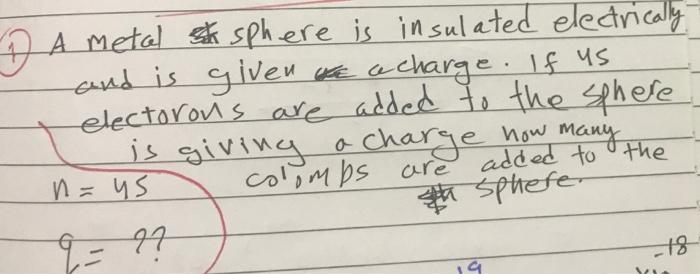 1 A metal sphere is insulated electrically
and is given a charge. If 45
electorons are added to the sphere
is giving a charge how many
colombs are added to the
sphere.
n = 45
q = ??
-18
19